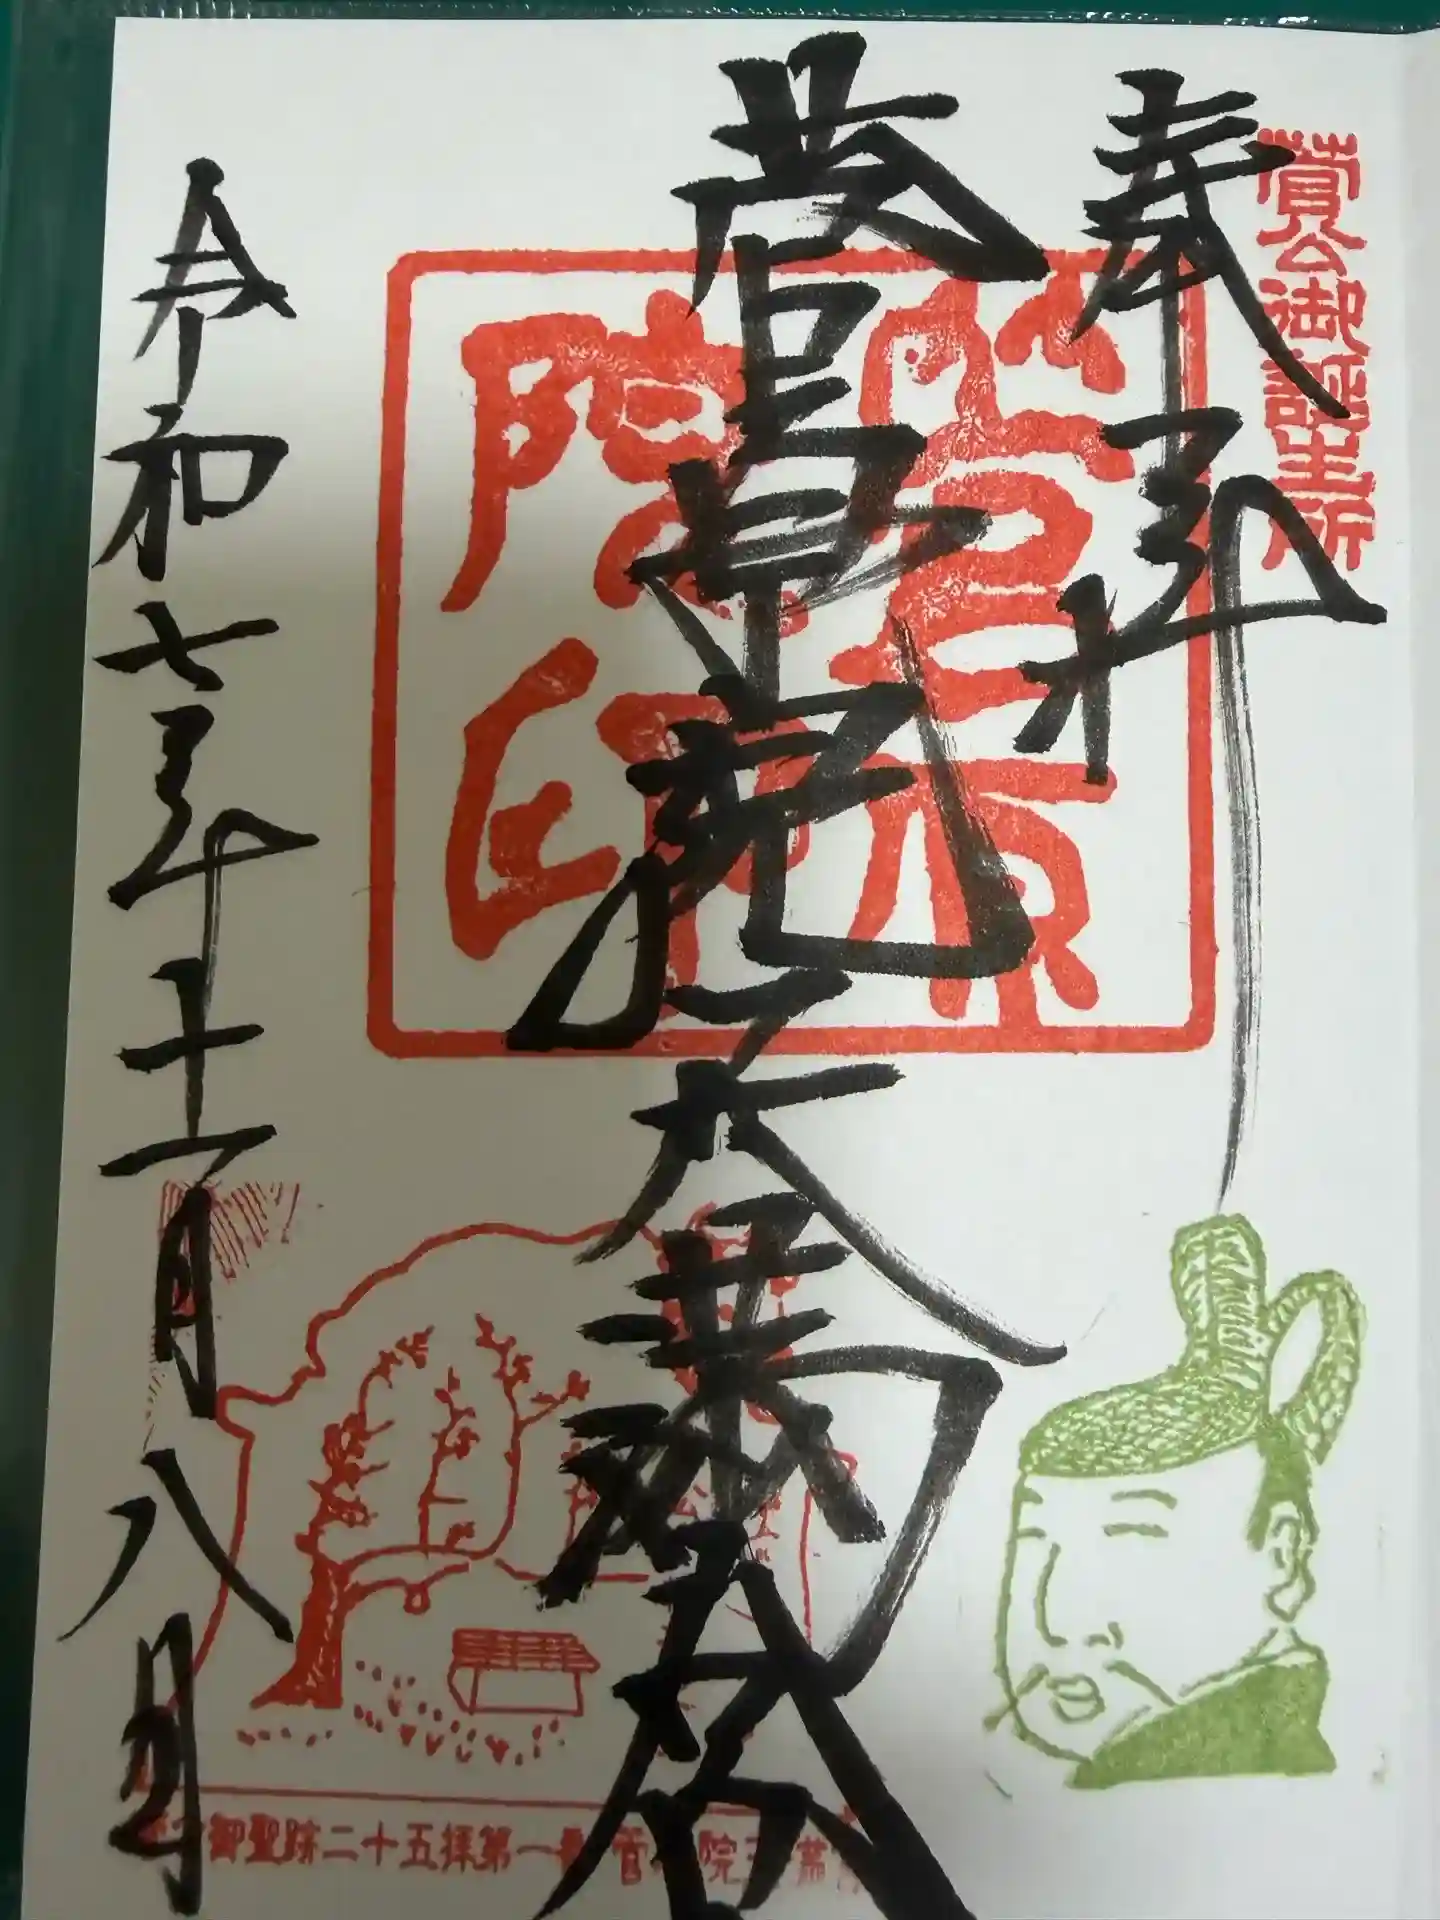 菅公御誕生所
奉拝
菅原院天満宮
菅原院印
令和七年十一月八日
御聖跡二十五拝第一番 菅原院天満宮